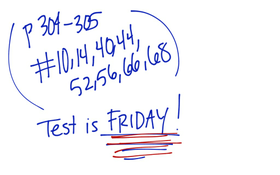 p 304-305
#10,14,40,44,
52,56,66,68
Test is FRIDAY!